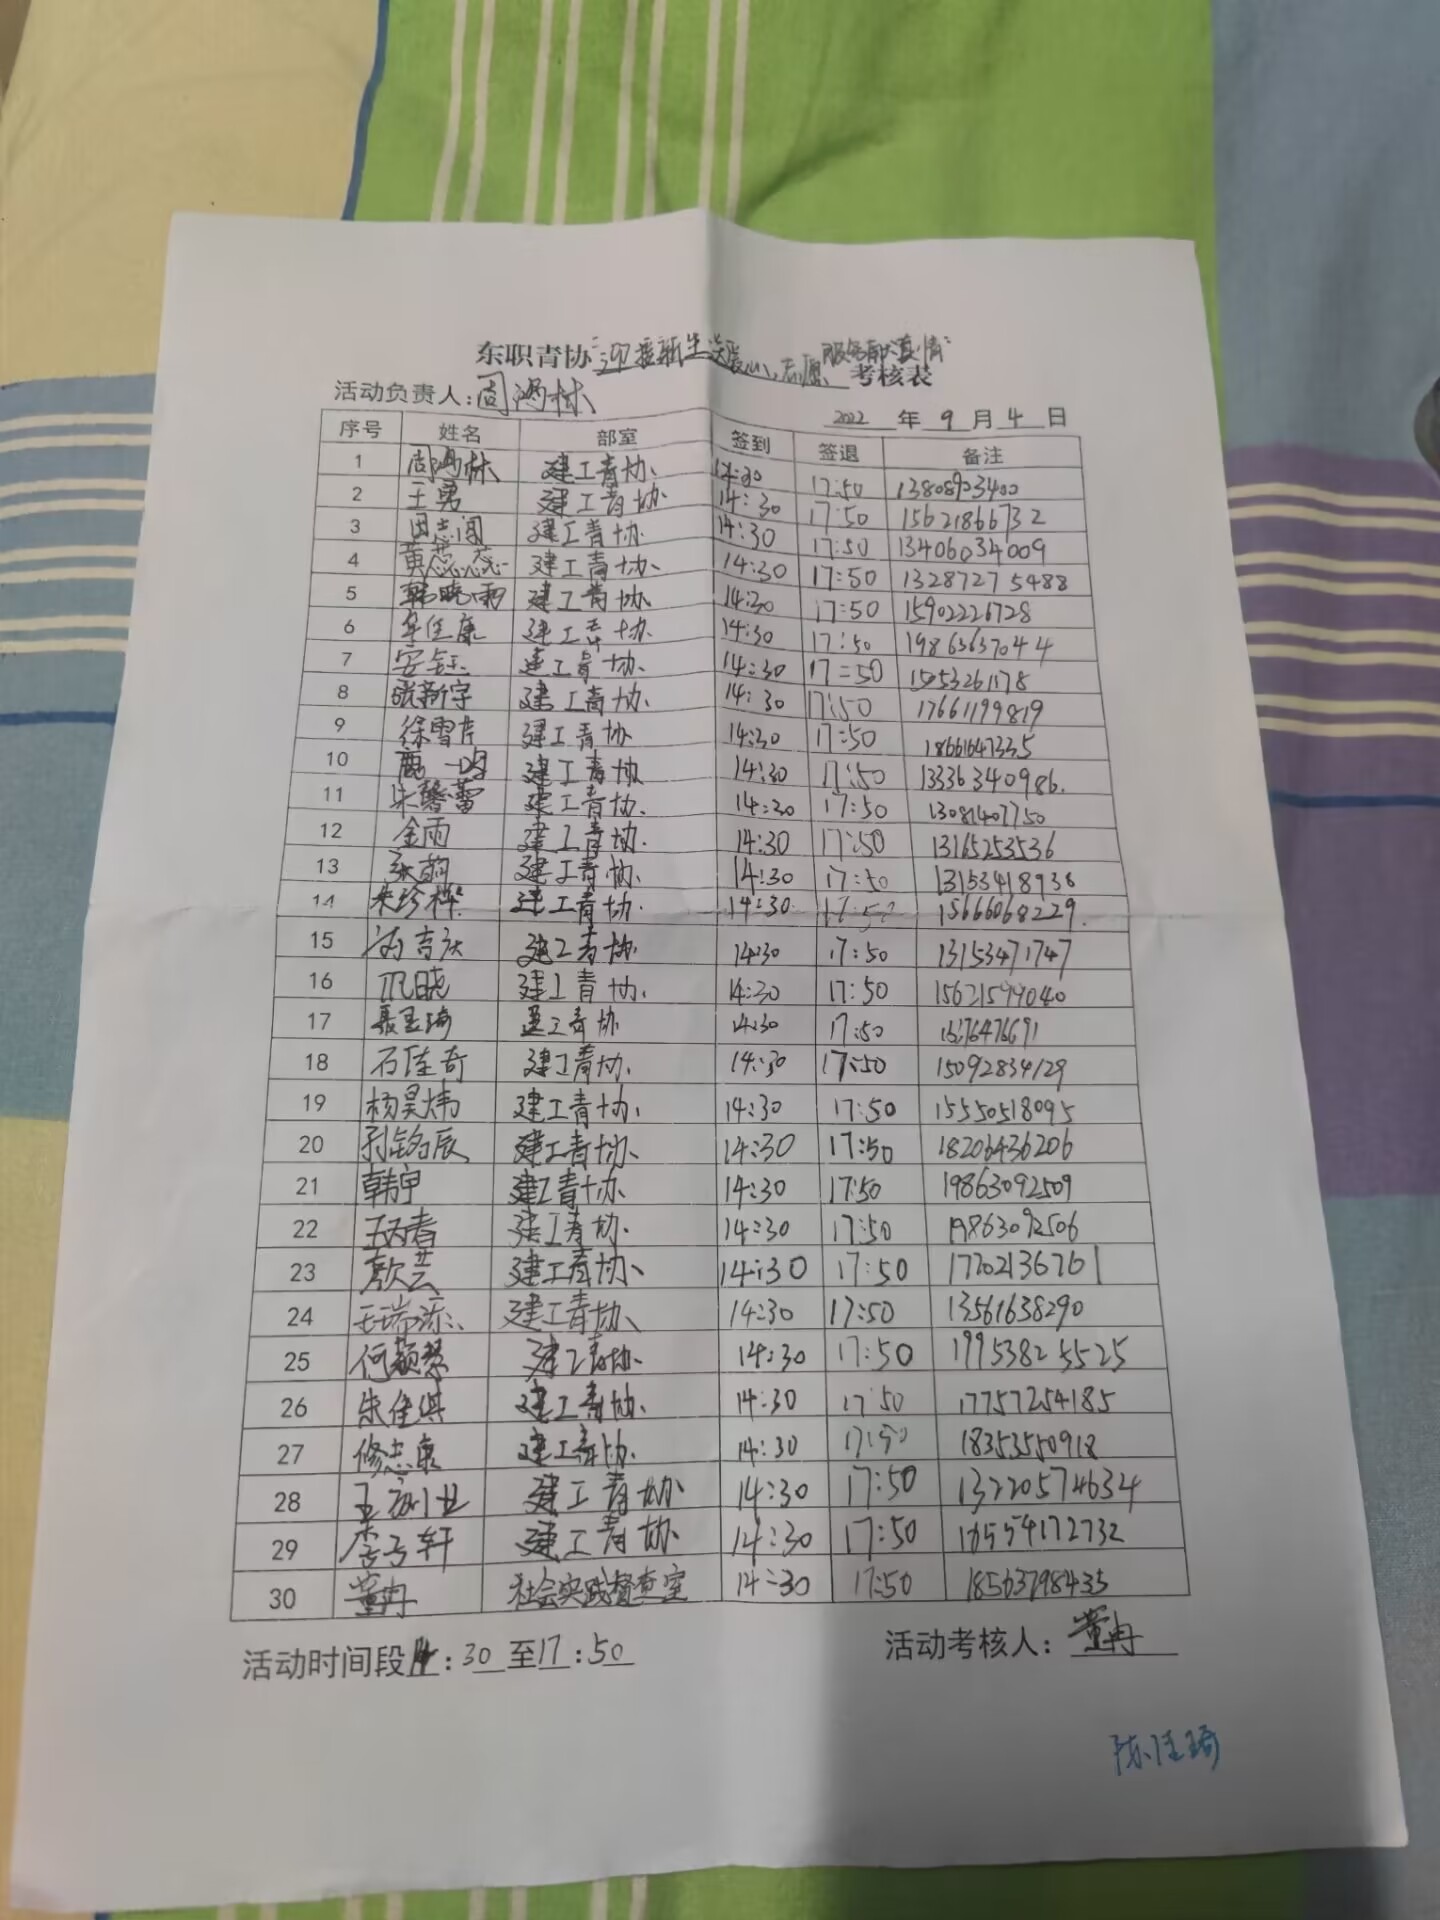 东职青协"迎接新生送爱心,志愿服务献真情"考核表
活动负责人:周鸿林
2022 年 9 月 4 日
序号 姓名 部室 签到 签退 备注
1 周鸿林 建工青协 14:30 17:50 13808903400
2 王勇 建工青协 14:30 17:50 15621866732
3 田志闯 建工青协 14:30 17:50 13406034009
4 黄蕊蕊 建工青协 14:30 17:50 13287275488
5 韩晓雨 建工青协 14:30 17:50 15902226728
6 牟佳康 建工青协 14:30 17:50 19863637044
7 安钰 建工青协 14:30 17:50 15053261178
8 张新宇 建工青协 14:30 17:50 17661199819
9 徐雪芹 建工青协 14:30 17:50 18661647335
10 一鸣 建工青协 14:30 17:50 13336340986.
11 朱馨蕾 建工青协 14:30 17:50 13081407750
12 金雨 建工青协 14:30 17:50 13165253536
13 建工青协 14:30 17:50 13153418936
14 朱珍桦 建工青协 14:30 17:50 15666068229.
15 吉庆 建工青协 14:30 17:50 13153471747
16 巩晓 建工青协 14:30 17:50 15621599040
17 聂玉琦 建工青协 14:30 17:50
18 石佳奇 建工青协 14:30 17:50 15092834129
19 杨昊炜 建工青协 14:30 17:50 15550518095
20 孙铭辰 建工青协 14:30 17:50 18206436206
21 韩宇 建工青协 14:30 17:50 19863092509
22 建工青协 14:30 17:50 19863092506
23 建工青协 14:30 17:50 17702136761
24 王瑞添 建工青协 14:30 17:50 13561638290
25 何颖慧 建工青协 14:30 17:50 19953825525
26 朱佳琪 建工青协 14:30 17:50 17757254185
27 修志康 建工青协 14:30 17:50 18353550918
28 建工青协 14:30 17:50 13220574634
29 李子轩 建工青协 14:30 17:50 16554172732
30 董冉 社会实践督查室 14:30 17:50 18563798435
活动时间段14:30至17:50 活动考核人:董冉
陈佳琦